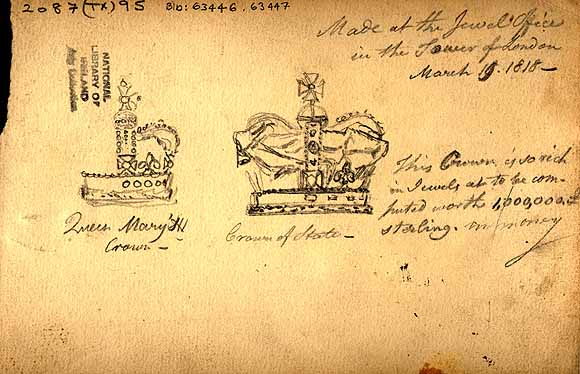 2087(TX)95
Bib: 63446, 63447
NATIONAL
LIBRARY OF
IRELAND
Made at the Jewel Office
in the Tower of London
March 1818 -
This Crown, is so rich
in Jewels as to be com-
puted worth 1,000,000,
sterling. in money
Queen Mary's
Crown -
Crown of State -